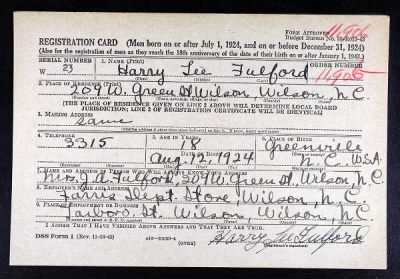 FORM APPROVED
Budget Bureau No.
11906
REGISTRATION CARD (Men born on or after July 1, 1924, and on or before December 31, 1924)
(Also for the registration of men as they reach the 18th anniversary of the date of their birth on or after January 1, 1943.)
SERIAL NUMBER 1. NAME (Print) ORDER NUMBER
W 23 Harry Lee Fulford 11906
2. PLACE OF RESIDENCE (Print)
209 W. Green St Wilson, Wilson, N.C.
[THE PLACE OF RESIDENCE GIVEN ON LINE 2 ABOVE WILL DETERMINE LOCAL BOARD
JURISDICTION; LINE 2 OF REGISTRATION CERTIFICATE WILL BE IDENTICAL]
3. MAILING ADDRESS
same
4. TELEPHONE 5. AGE IN YEARS 6. PLACE OF BIRTH
3315 18 Greenville
DATE OF BIRTH
Aug. 12 1924 N.C. U.S.A.
7. NAME AND ADDRESS OF PERSON WHO WILL ALWAYS KNOW YOUR ADDRESS
Fulford, 209 W. Green St, Wilson, N.C.
8. EMPLOYER'S NAME AND ADDRESS
Dept. Store, Wilson, N.C.
9. PLACE OF EMPLOYMENT OR BUSINESS
St. Wilson, Wilson, N.C.
I AFFIRM THAT I HAVE VERIFIED ABOVE ANSWERS AND THAT THEY ARE TRUE.
DSS Form 1 (OVER) Harry Lee Fulford
(Registrant's signature)